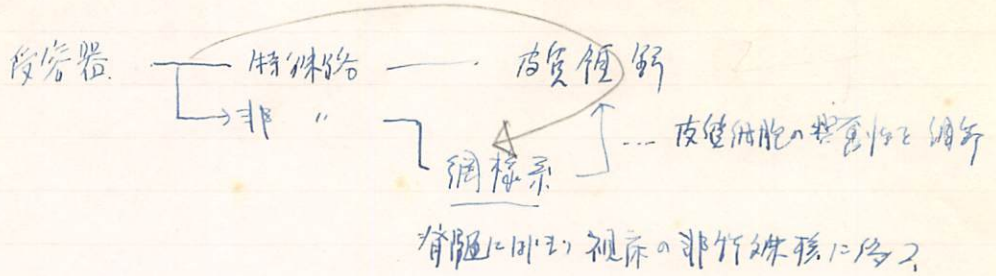 受容器 特殊路 皮質領野
非 〃
網様系 … 皮質細胞の興奮性を調節
脊髄にはじまり視床の非特殊核に終る